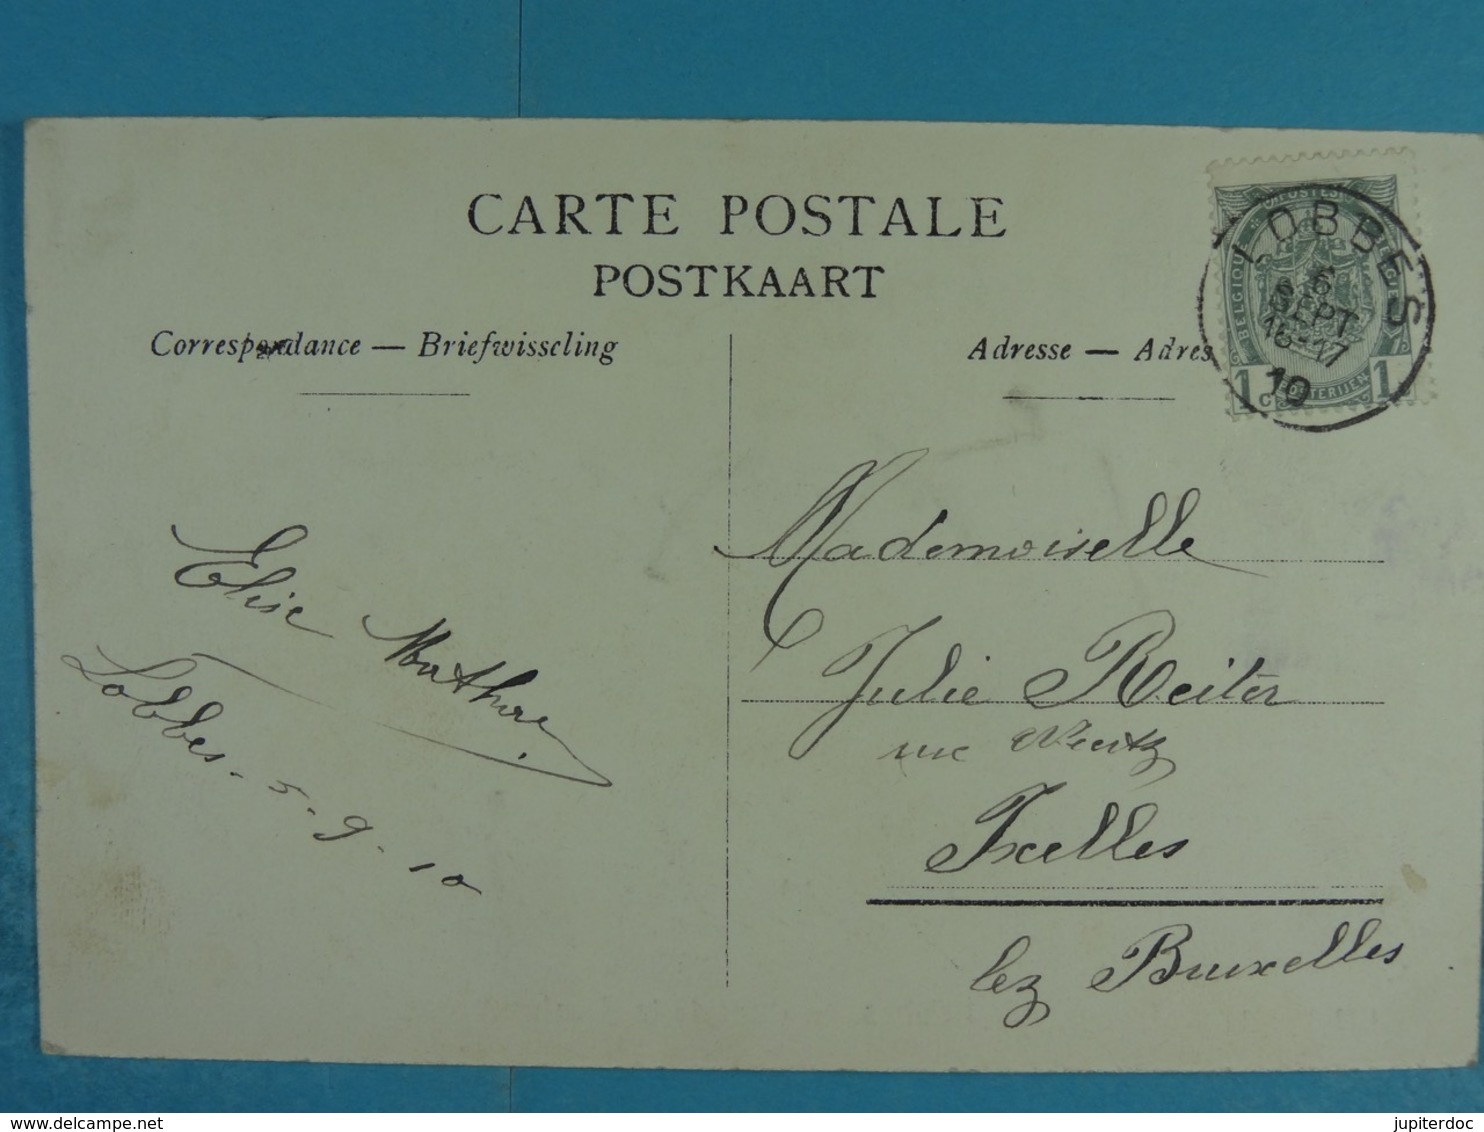 CARTE POSTALE
POSTKAART
Correspondance — Briefwisseling
Adresse — Adres
LOBBES
6
SEPT
16-17
10
BELGIQUE
POSTES
1 C
1
Elise
Lobbes - 5-9-10
Mademoiselle
Julie Reiter
rue
Ixelles
lez Bruxelles
www.delcampe.net
jupiterdoc